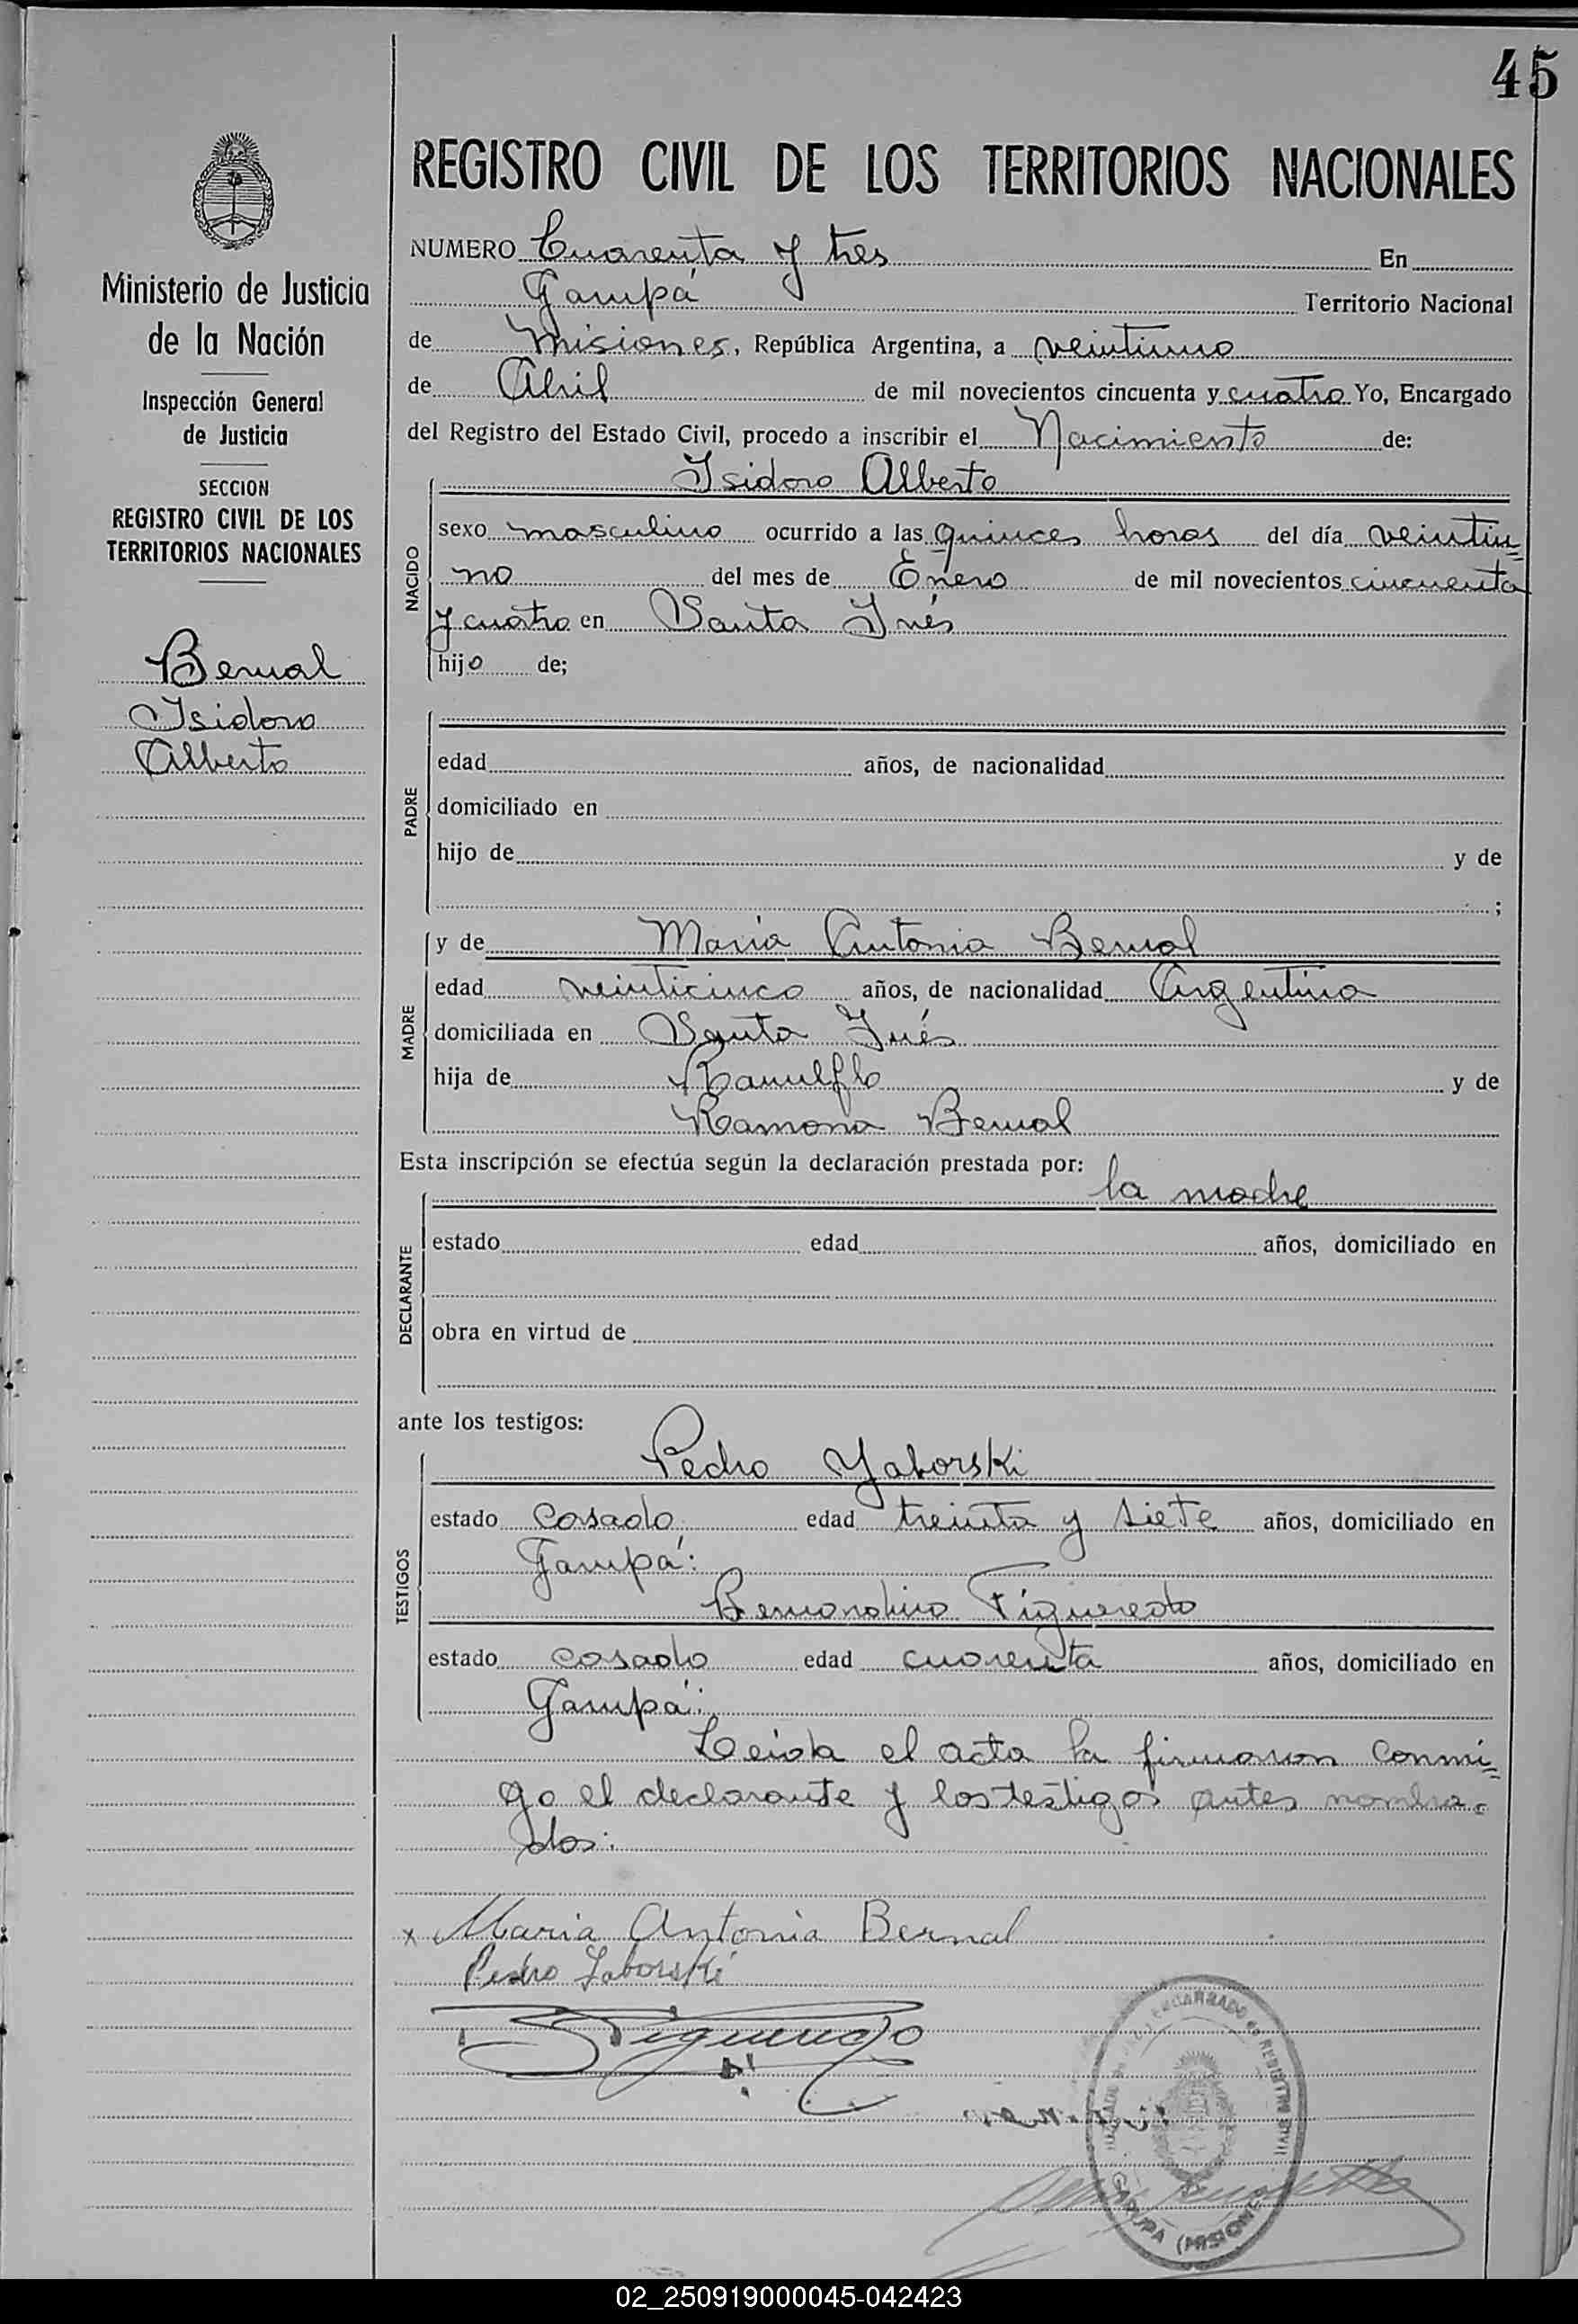 45
REGISTRO CIVIL DE LOS TERRITORIOS NACIONALES
Ministerio de Justicia
de la Nación
Inspección General
de Justicia
SECCION
REGISTRO CIVIL DE LOS
TERRITORIOS NACIONALES
Bernal
Isidoro
Alberto
NUMERO Cuarenta y tres En
Garupá Territorio Nacional
de Misiones, República Argentina, a veintiuno
de Abril de mil novecientos cincuenta y cuatro Yo, Encargado
del Registro del Estado Civil, procedo a inscribir el Nacimiento de:
NACIDO
Isidoro Alberto
sexo masculino ocurrido a las quinces horas del día veintiu=
no del mes de Enero de mil novecientos cincuenta
y cuatro en Santa Inés
hijo de;
PADRE
edad años, de nacionalidad
domiciliado en
hijo de y de
;
MADRE
y de Maria Antonia Bernal
edad veinticinco años, de nacionalidad Argentina
domiciliada en Santa Inés
hija de y de
Ramona Bernal
Esta inscripción se efectúa según la declaración prestada por:
la madre
DECLARANTE
estado edad años, domiciliado en
obra en virtud de
ante los testigos:
TESTIGOS
Pedro Yaborski
estado casado, edad treinta y siete años, domiciliado en
Garupá:
Bernardino Figueredo
estado casado edad cuarenta años, domiciliado en
Garupá:
Leida el acta la firmaron conmi=
go el declarante y los testigos antes nombra=
dos:
x Maria Antonia Bernal
Pedro Yaborski
Figueredo
ENCARGADO REGISTRO CIVIL
GARUPA (MISIONES)
02_250919000045-042423